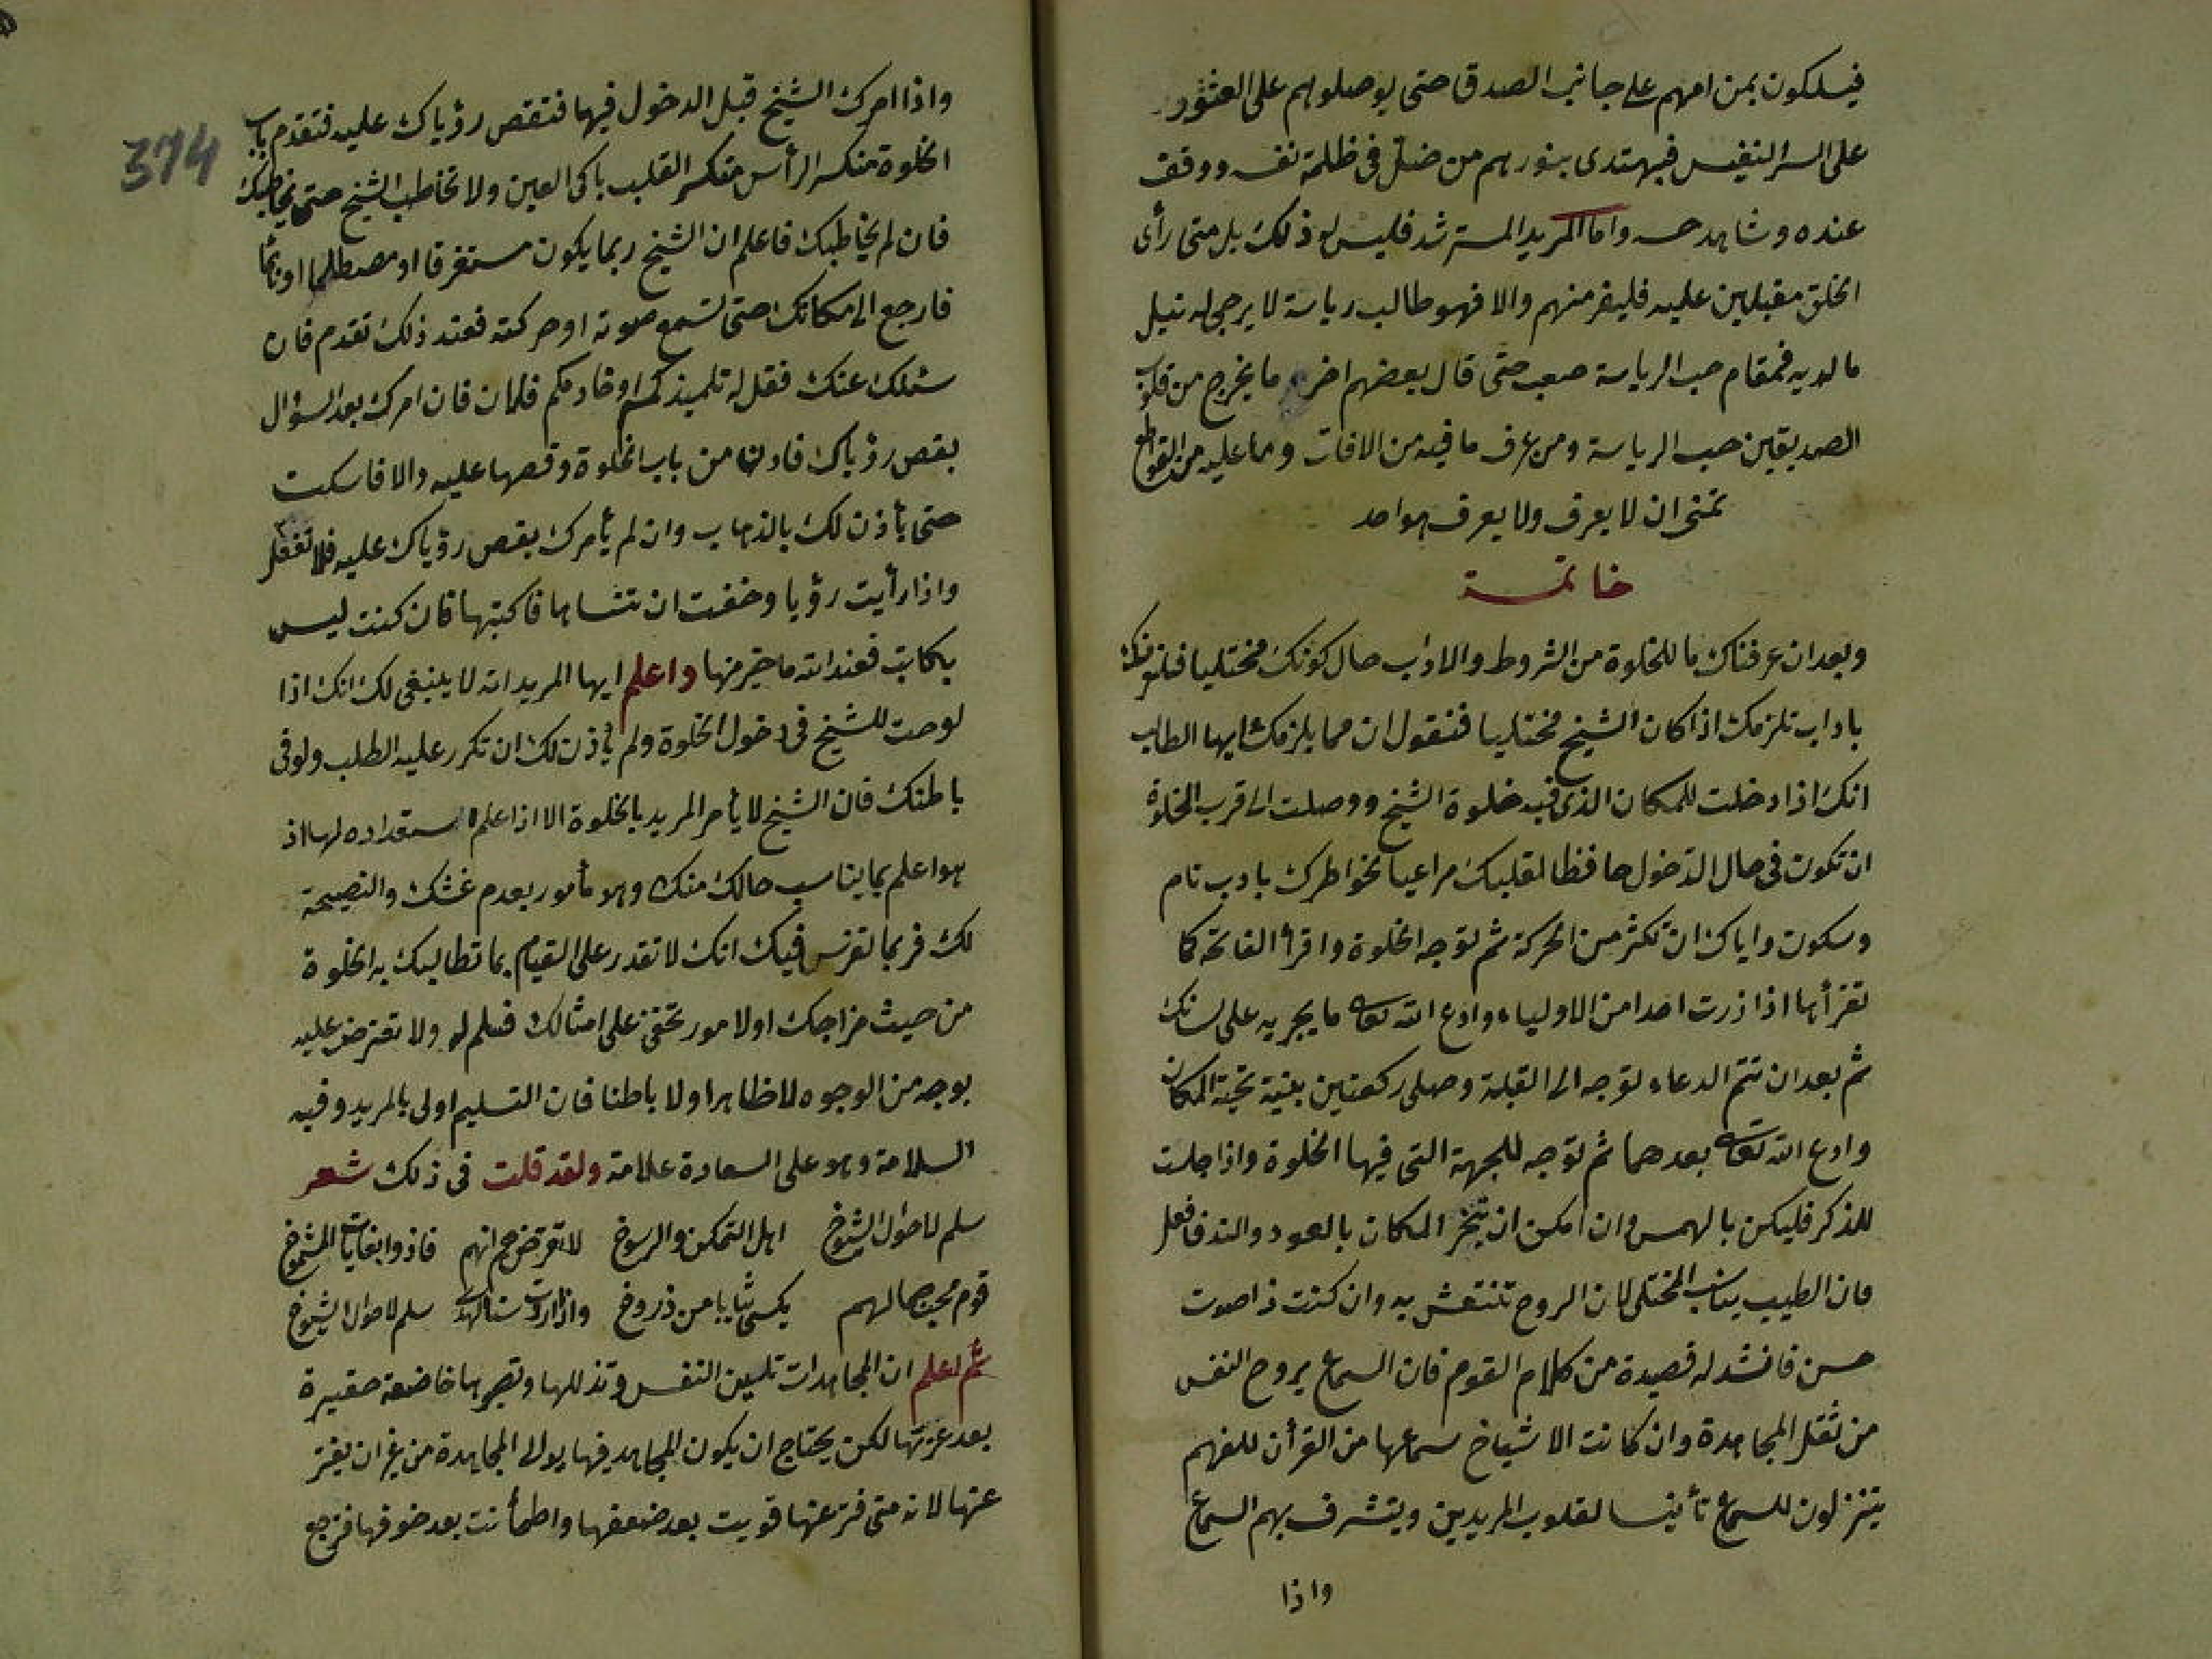 فيسلكون بمن امهم على جانب الصدق حتى يوصلوهم على العثور
على السر النفيس فيهتدى بنورهم من ضل فى ظلمة نفسه ووقف
عنده وشاهد حسه واما المريد المسترشد فليس له ذلك بل متى رأى
الخلق مقبلين عليه فليفر منهم والا فهو طالب رياسة لا يرجى له نيل
ما لديه فمقام حب الرياسة صعب حتى قال بعضهم اخر ما يخرج من قلوب
الصديقين حب الرياسة ومن عرف ما فيه من الافات وما عليه من القواطع
تمنى ان لا يعرف ولا يعرف هو احد
خاتمة
وبعد ان عرفناك ما للخلوة من الشروط والاداب حال كونك مختليا فلنعرفك
باداب تلزمك اذا كان الشيخ مختليا فنقول ان مما يلزمك ايها الطالب
انك اذا دخلت للمكان الذى فيه خلوة الشيخ ووصلت الى قرب الخلوة
ان تكون فى حال الدخول حافظا لقلبك مراعيا لخواطرك بادب تام
وسكون واياك ان تكثر من الحركة ثم توجه الخلوة واقرأ الفاتحة كما
تقرأها اذا زرت احدا من الاولياء وادع الله تعالى ما يجريه على لسانك
ثم بعد ان تتم الدعاء توجه الى القبلة وصلى ركعتين بنية تحية المكان
وادع الله تعالى بعدهما ثم توجه للجهة التى فيها الخلوة واذا جلست
للذكر فليكن بالهمس وان امكن ان تبخر المكان بالعود والند فافعل
فان الطيب يناسب المختلى لان الروح تنتعش به وان كنت ذا صوت
حسن فانشد له قصيدة من كلام القوم فان السماع يروح النفس
من ثقل المجاهدة وان كانت الاشياخ سماعها من القرأن للفهم
يتنزلون للسماع تأنيسا لقلوب المريدين ويتشرف بهم السماع
واذا
374
واذا امرك الشيخ قبل الدخول فيها فتقص رؤياك عليه فتقدم باب
الخلوة منكسر الرأس منكسر القلب باكى العين ولا تخاطب الشيخ حتى يخاطبك
فان لم يخاطبك فاعلم ان الشيخ ربما يكون مستغرقا او مصطلما او نائما
فارجع الى مكانك حتى تسمع صوته او حركته فعند ذلك تقدم فان
سئلك عنك فقل له تلميذكم او خادمكم فلان فان امرك بعد السؤال
بقص رؤياك فادن من باب الخلوة وقصها عليه والا فاسكت
حتى يأذن لك بالذهاب وان لم يأمرك بقص رؤياك عليه فلا تفعل
واذا رأيت رؤيا وخفت ان تنساها فاكتبها فان كنت ليس
بكاتب فعند الله ما خير منها واعلم ايها المريد انه لا ينبغى لك انك اذا
لوحت للشيخ فى دخول الخلوة ولم يأذن لك ان تكرر عليه الطلب ولو فى
باطنك فان الشيخ لا يأمر المريد بالخلوة الا اذا علم استعداده لها اذ
هو اعلم بما يناسب حالك منك وهو مأمور بعدم غشك والنصيحة
لك فربما تفرس فيك انك لا تقدر على القيام بما تطالبك به الخلوة
من حيث مزاجك او لامور تخفى على امثالك فسلم له ولا تعترض عليه
بوجه من الوجوه لا ظاهرا ولا باطنا فان التسليم اولى بالمريد وفيه
السلامة وهو على السعادة علامة ولقد قلت فى ذلك شعر
سلم لاحوال الشيوخ اهل التمكن والرسوخ لا تعترض انهم فاذوا بغايات الشموخ
قوم محب جمالهم يكسى ثيابا من ذروخ واذا اردت سلم لاحوال الشيوخ
ثم اعلم ان المجاهدات تلين النفس وتذللها وتصيرها خاضعة حقيرة
بعد عزتها لكن يحتاج ان يكون المجاهد فيها يوالى المجاهدة من غير ان يفتر
عنها لانه متى فتر عنها قويت بعد ضعفها واطمأنت بعد خوفها فترجع